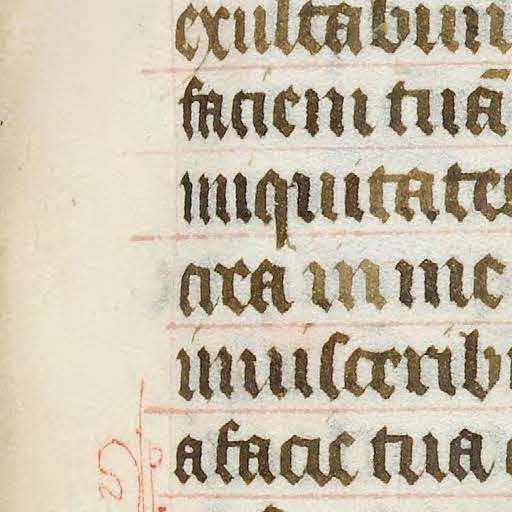 exultabun
faciem tuā
iniquitates
crea in me
inuiscerib
a facie tua